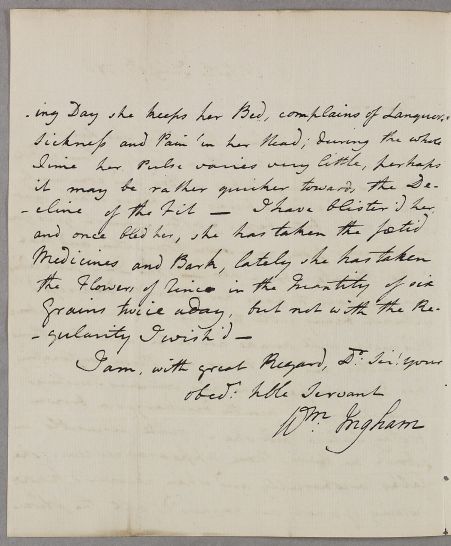 -ing Day she keeps her Bed, complains of Languor,
Sickness and Pain in her Head; during the whole
Time her Pulse varies very little, perhaps
it may be rather quicker towards the De-
-cline of the Fit — I have blister'd her
and once bled her, she has taken the fœtid
Medicines and Bark, lately she has taken
the Flowers of Zinc in the Quantity of six
Grains twice a day, but not with the Re-
-gularity I wish'd —
I am, with great Regard, Dr. Sir! your
obedt. hble Servant
Wm. Ingham